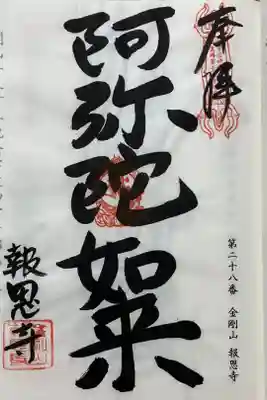 奉拝
第二十八番 金剛山 報恩寺
阿弥陀如来
報恩寺